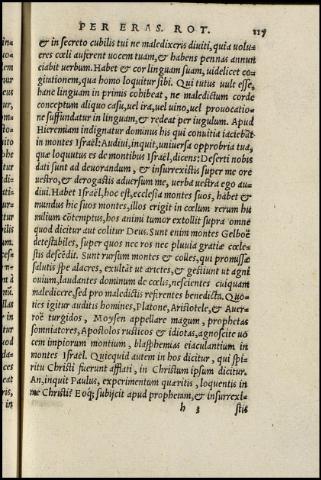 PER ERAS. ROT. 119
& in secreto cubilis tui ne maledixeris diuiti, quia volu-
cres cœli auferent uocem tuam, & habens pennas annun
ciabit uerbum. Habet & cor linguam suam, uidelicet co-
gitationem, qua homo loquitur sibi. Qui tutus uult esse,
hanc linguam in primis cohibeat, ne maledictum corde
conceptum aliquo casu, uel ira, uel uino, uel prouocatio-
ne suffundatur in linguam, & redeat per iugulum. Apud
Hieremiam indignatur dominus his qui conuitia iactebāt
in montes Israël: Audiui, inquit, uniuersa opprobria tua,
quæ loquutus es de montibus Israël, dicens: Deserti nobis
dati sunt ad deuorandum, & insurrexistis super me ore
uestro, & derogastis aduersum me, uerba uestra ego au-
diui. Habet Israël, hoc est, ecclesia montes suos, habet &
mundus hic suos montes, illos erigit in cœlum rerum hu
milium cōtemptus, hos animi tumor extollit supra omne
quod dicitur aut colitur Deus. Sunt enim montes Gelboë
detestabiles, super quos nec ros nec pluuia gratiæ cœle-
stis descēdit. Sunt rursum montes & colles, qui promissæ
salutis spe alacres, exultāt ut arietes, & gestiunt ut agni
ouium, laudantes dominum de cœlis, nescientes cuiquam
maledicere, sed pro maledictis referentes benedicta. Quo-
ties igitur auditis homines, Platone, Aristotele, & Auer-
roë turgidos, Moysen appellare magum, prophetas
somniatores, Apostolos rusticos & idiotas, agnoscite uo
cem impiorum montium, blasphemias eiaculantium in
montes Israël. Quicquid autem in hos dicitur, qui spi-
ritu Christi fuerunt afflati, in Christum ipsum dicitur.
An, inquit Paulus, experimentum quæritis, loquentis in
me Christi? Eoq; subijcit apud prophetam, & insurrexi-
h 3 stis